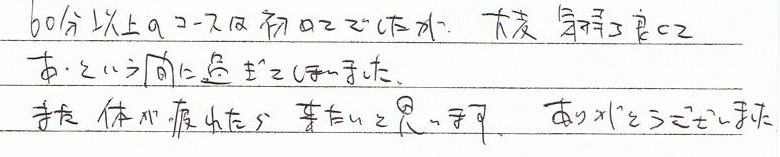 60分以上のコースは初めてでしたが、大変気持ち良くて
あっという間に過ぎてしまいました。
また体が疲れたら来たいと思います。ありがとうございました